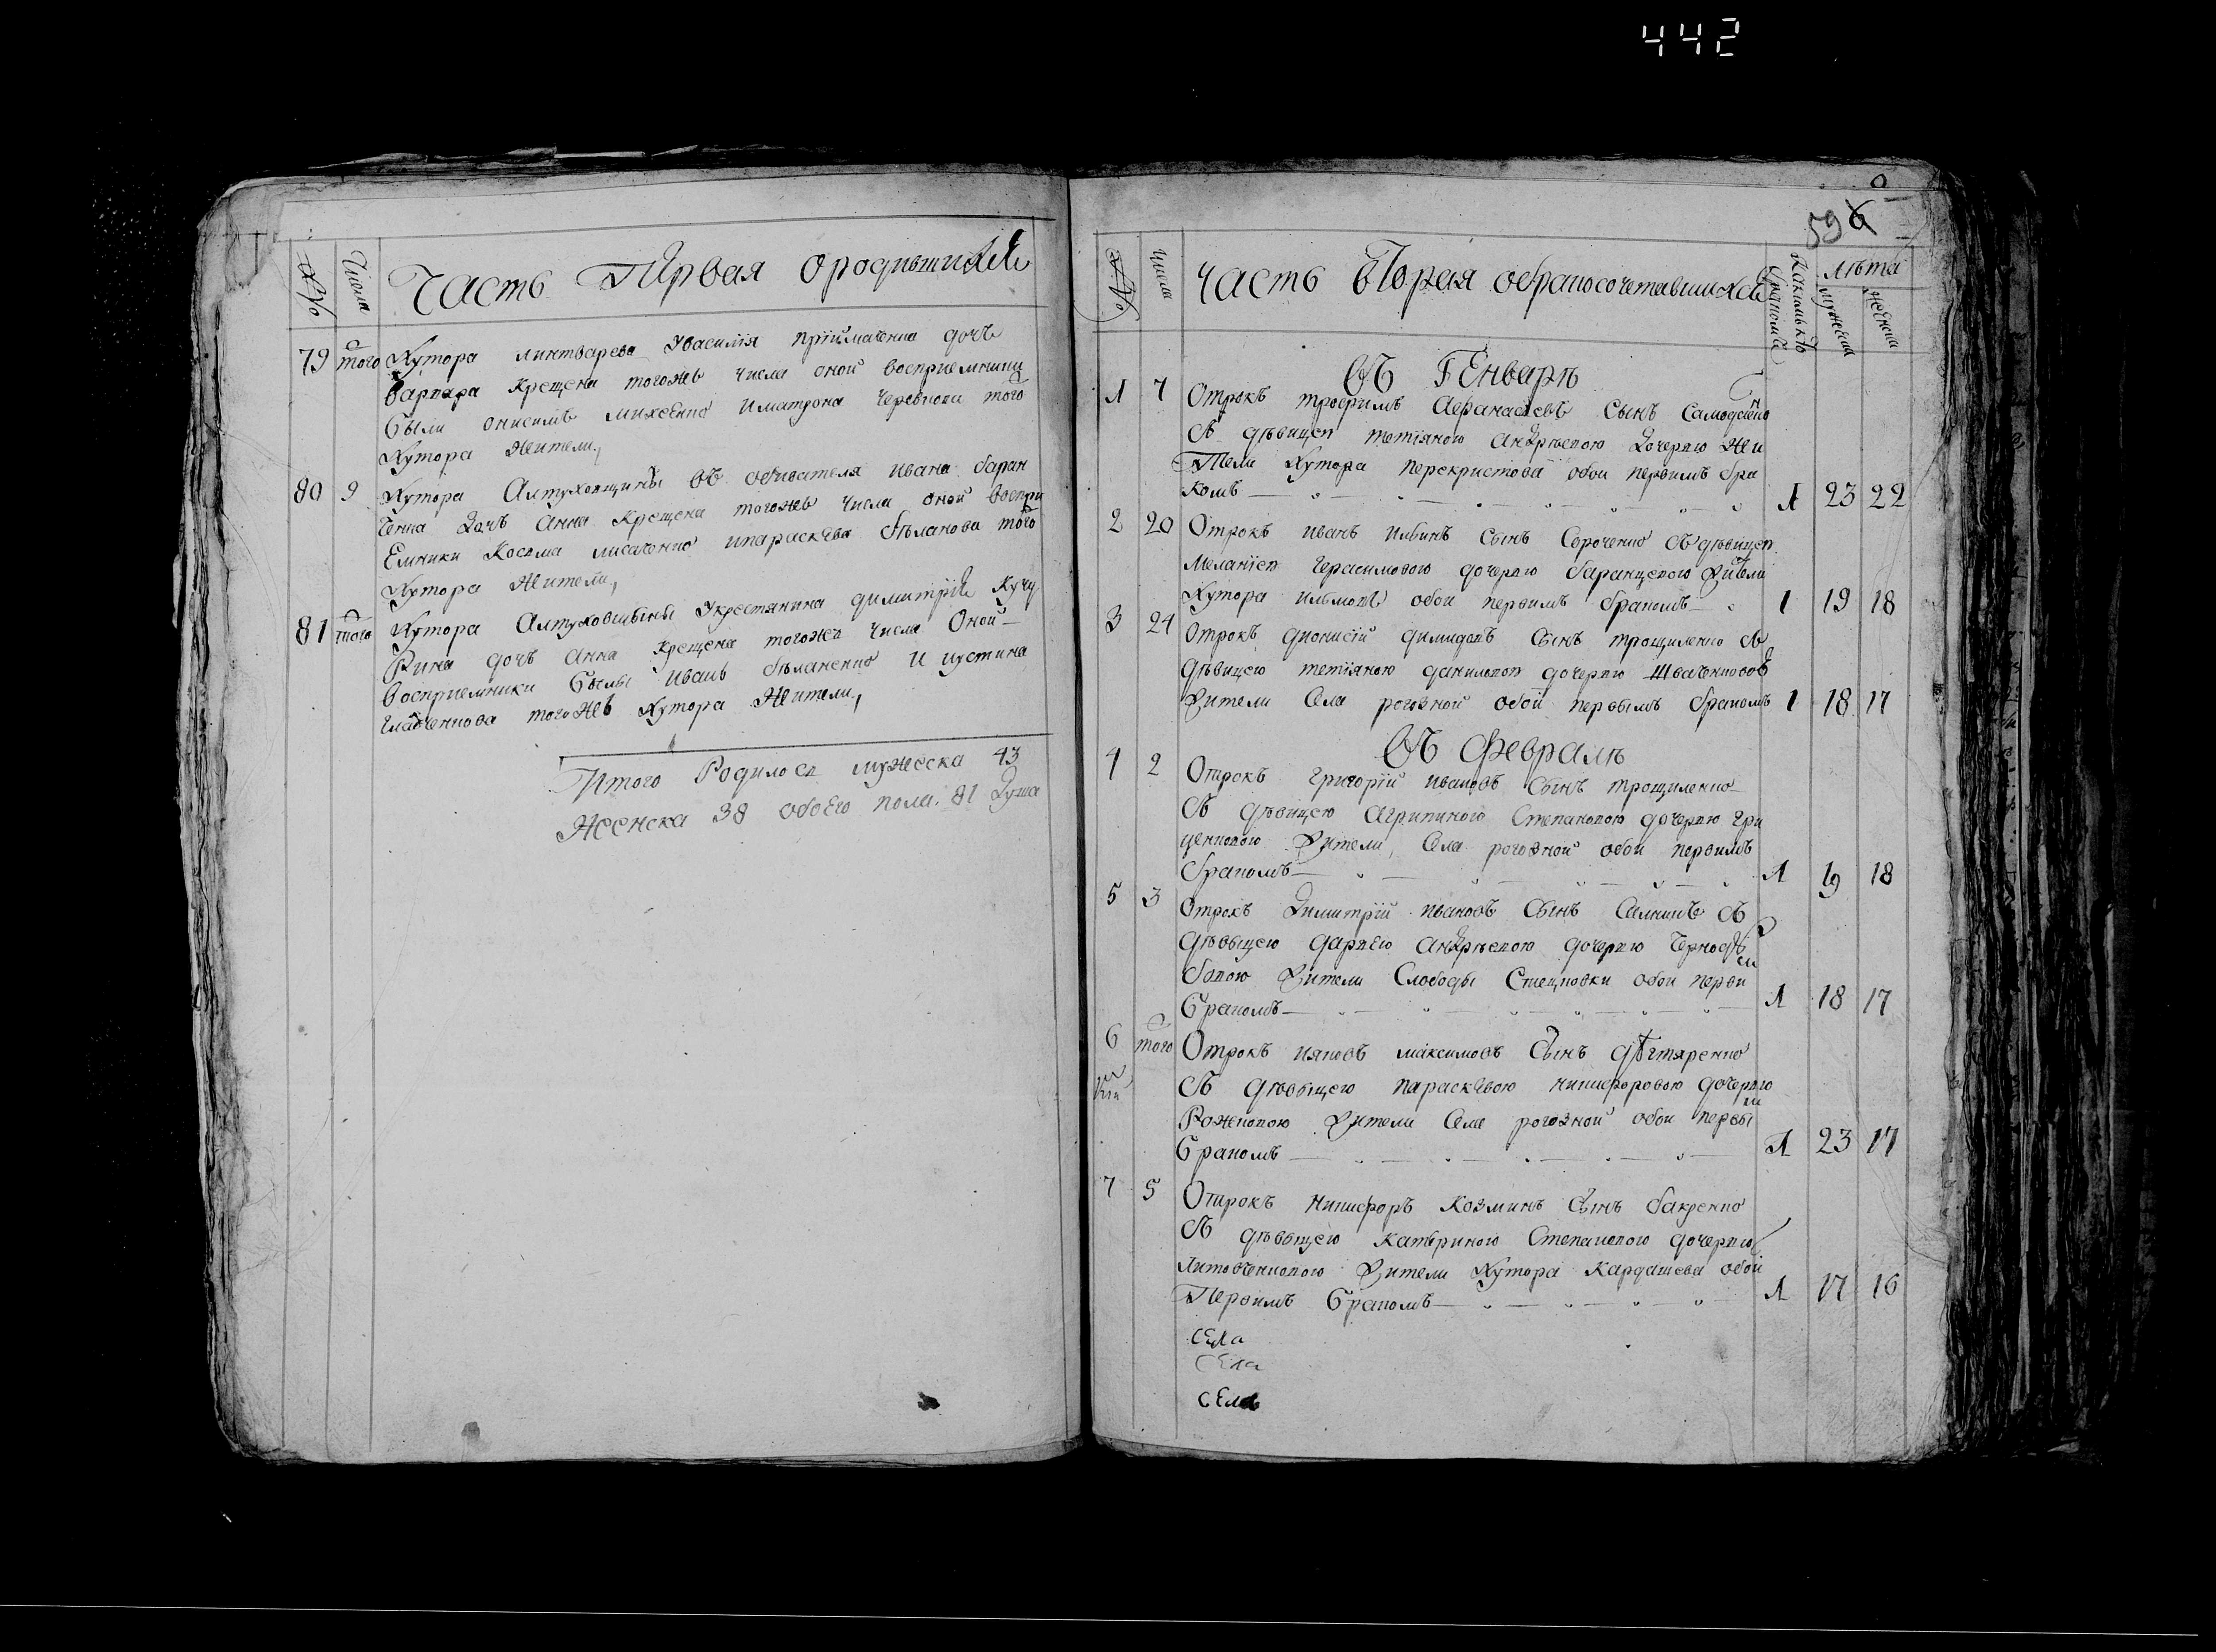 442
№
Числа
Часть Первая ородившихся
79 того Хутора линтварева Увасилія пріиматенка дочь
варвара крещена тогожъ числа оной восприемники
были онисимъ михеенко иматрона черевкова того
Хутора жители,
80 9 Хутора Алтуховщины въ обивателя ивана баран
ченка дочъ анна крещена тогожъ числа оной воспри
емники Косьма лисаченко ипараскева бѣланова того
Хутора жители,
81 того Хутора Алтуховшины Укрестянина димитрія кучу
рина дочъ анна крещена тогожъ числа оной
восприемники былы иванъ бѣланенко и иустина
тогожъ Хутора жители,
Итого Родилося мужеска 43
женска 38 обоего пола. 81 душа
59
№
числа
часть вторая обракосочетавшихся
лѣта
мужеска
женска
въ Генварѣ
1 7 Отрокъ трофимъ Афанасіевъ сынъ
съ дѣвицею тетіяною андрѣевою дочерью жи
тели Хутора перекристова обои первимъ бра
комъ 1 23 22
2 20 Отрокъ иванъ ильинъ сынъ Сороченко съ дѣвицею
меланіею Герасимовою дочерью баранцевою жители
Хутора обои первимъ бракомъ 1 19 18
3 24 Отрокъ дионисій димидовъ сынъ трощиленко съ
дѣвицею тетіяною даниловою дочерью
жители села рогозной обои первымъ бракомъ 1 18 17
въ Февралѣ
4 2 Отрокъ Григорій ивановъ сынъ трощиленко
съ дѣвицею агрипиною Степановою дочерью гри
ценковою жители, села рогозной обои первимъ
бракомъ 1 19 18
5 3 Отрокъ Димитрій ивановъ сынъ съ
дѣвыцею дариею андрѣевою дочерью
жители Слободы Стецковки обои перви
бракомъ 1 18 17
6 того Отрокъ ияковъ максимовъ сынъ дѣгтяренко
съ дѣвыцею параскевою никифоровою дочерью
Роженковою жители села рогозной обои первы
бракомъ 1 23 17
7 5 Отрокъ никифоръ козминъ сынъ бакренко
съ дѣвыцею катериною Степановою дочерью
литовченковою жители Хутора кардашева обои
Первимъ бракомъ 1 17 16
села
села
села